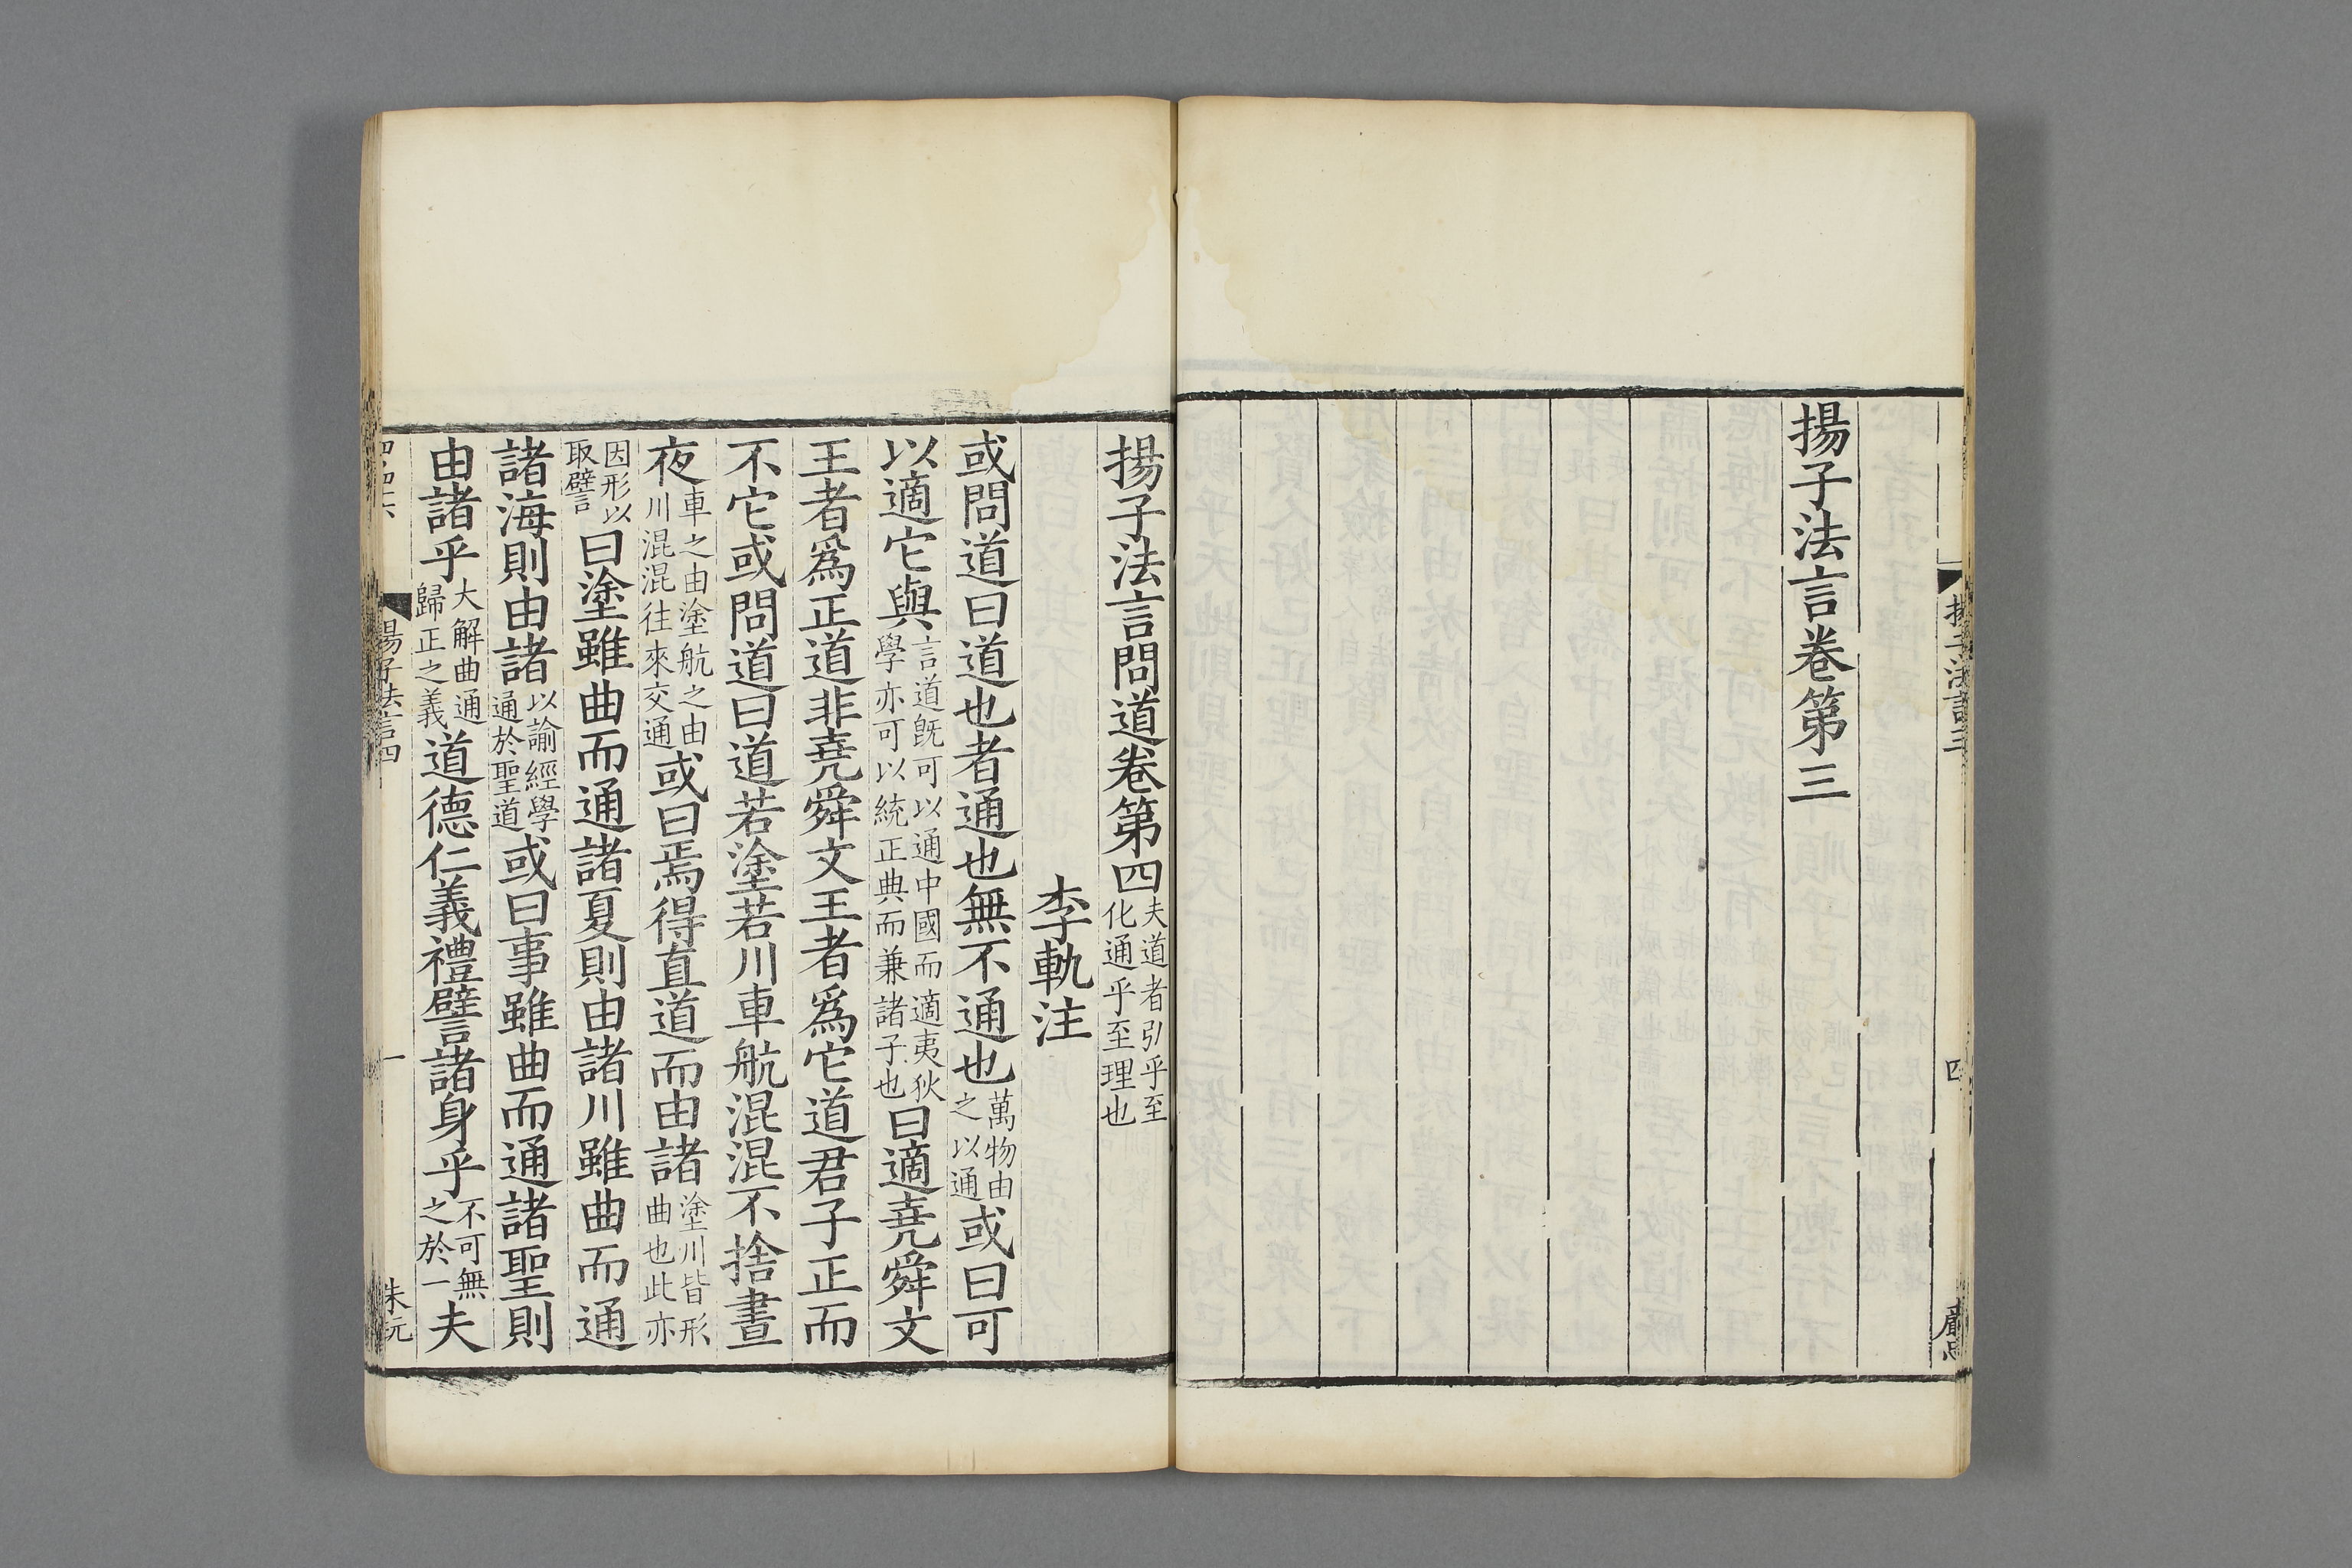 揚子法言卷第三
揚子法言問道卷第四夫道者引乎至化通乎至理也
李軌注
或問道曰道也者通也無不通也萬物由之以通或曰可
以適它與言道旣可以通中國而適夷狄學亦可以統正典而兼諸子也曰適堯舜文
王者爲正道非堯舜文王者爲它道君子正而
不它或問道曰道若塗若川車航混混不捨晝
夜車之由塗航之由川混混往來交通或曰焉得直道而由諸塗川皆形曲也此亦
因形以取譬曰塗雖曲而通諸夏則由諸川雖曲而通
諸海則由諸以諭經學通於聖道或曰事雖曲而通諸聖則
由諸乎大解曲通歸正之義道德仁義禮譬諸身乎不可無之於一夫
揚子法言四
一
朱玩